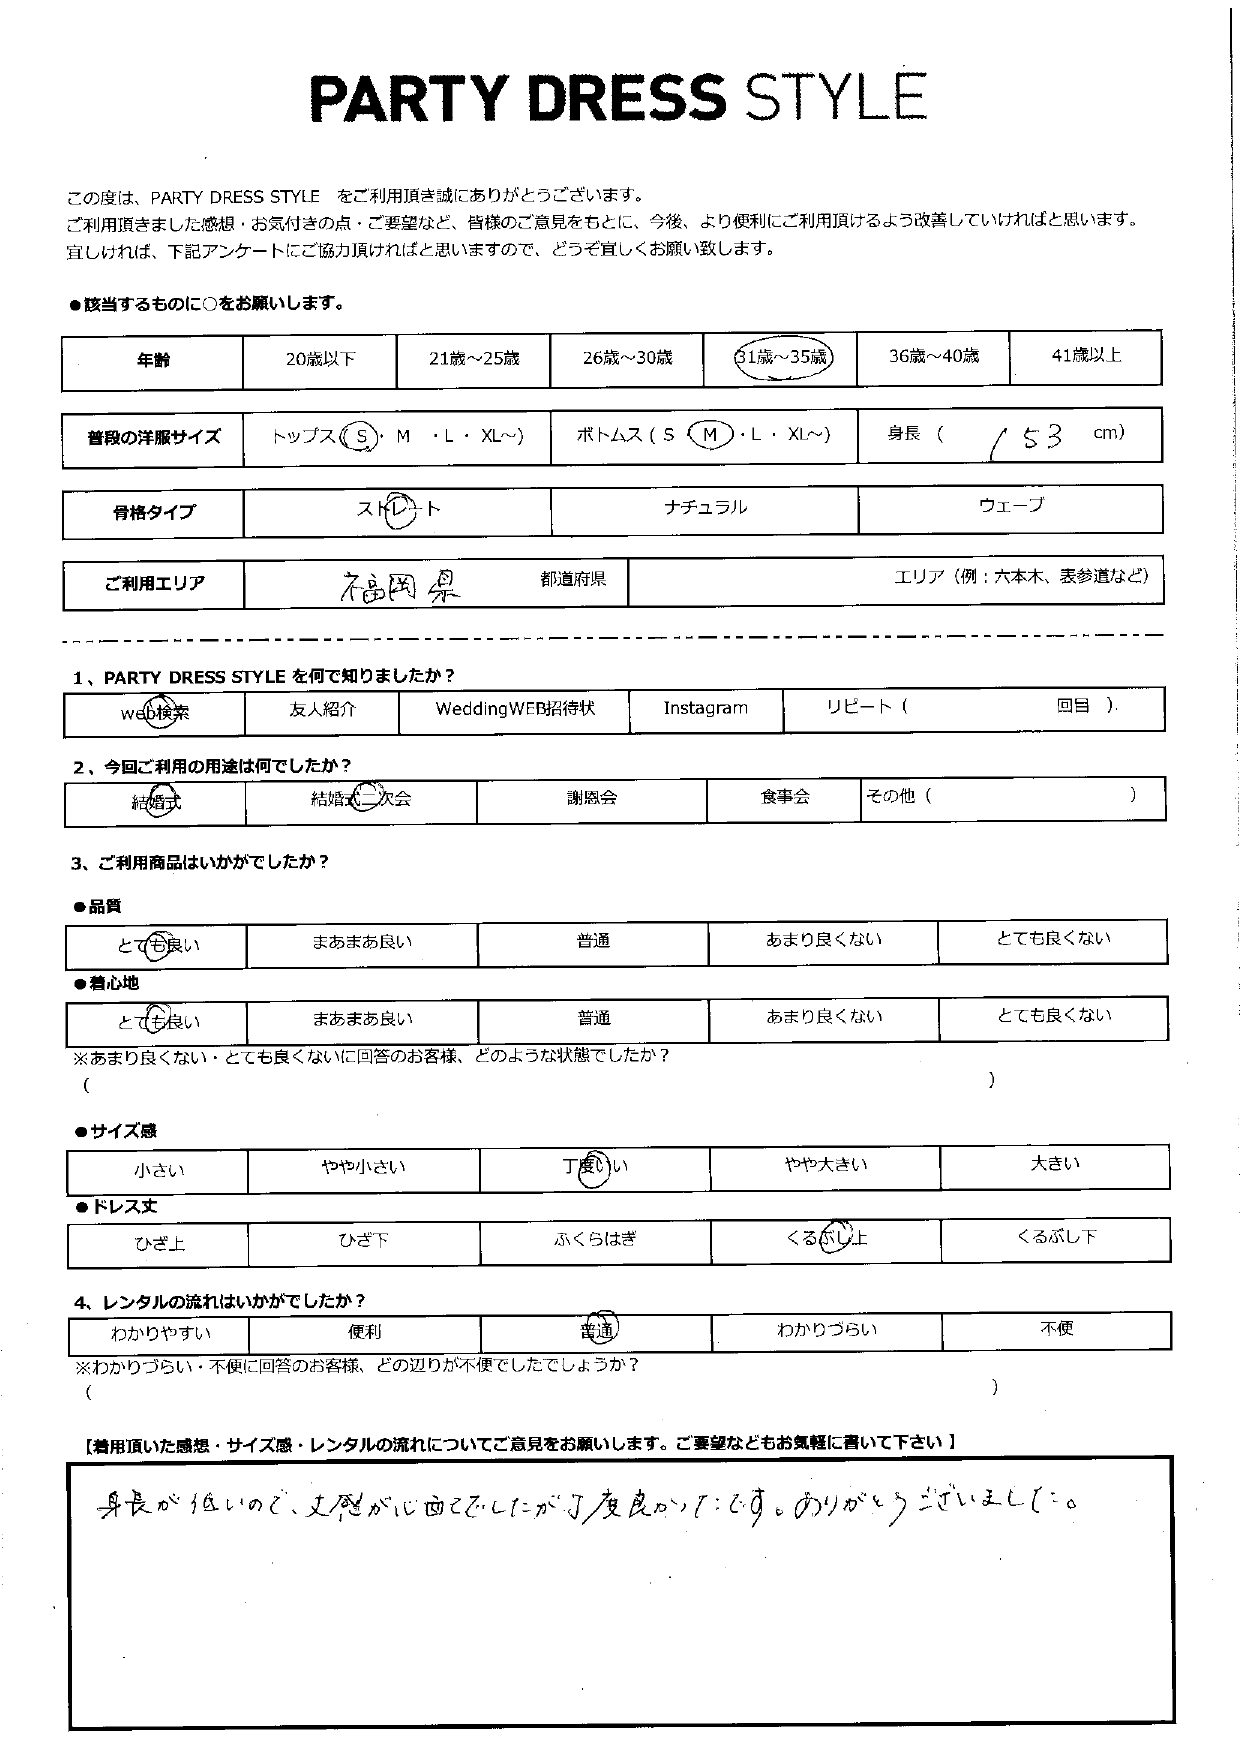 PARTY DRESS STYLE
この度は、PARTY DRESS STYLE をご利用頂き誠にありがとうございます。
ご利用頂きました感想・お気付きの点・ご要望など、皆様のご意見をもとに、今後、より便利にご利用頂けるよう改善していければと思います。
宜しければ、下記アンケートにご協力頂ければと思いますので、どうぞ宜しくお願い致します。
●該当するものに○をお願いします。
年齢 20歳以下 21歳～25歳 26歳～30歳 31歳～35歳 36歳～40歳 41歳以上
普段の洋服サイズ トップス(S・M ・L・XL～) ボトムス(S・M・L・XL～) 身長 ( 153 cm)
骨格タイプ ストレート ナチュラル ウェーブ
ご利用エリア 福岡県 都道府県 エリア（例：六本木、表参道など）
1、PARTY DRESS STYLE を何で知りましたか？
web検索 友人紹介 WeddingWEB招待状 Instagram リピート ( 回目 )
2、今回ご利用の用途は何でしたか？
結婚式 結婚式二次会 謝恩会 食事会 その他 ( )
3、ご利用商品はいかがでしたか？
●品質
とても良い まあまあ良い 普通 あまり良くない とても良くない
●着心地
とても良い まあまあ良い 普通 あまり良くない とても良くない
※あまり良くない・とても良くないに回答のお客様、どのような状態でしたか？
( )
●サイズ感
小さい やや小さい 丁度いい やや大きい 大きい
●ドレス丈
ひざ上 ひざ下 ふくらはぎ くるぶし上 くるぶし下
4、レンタルの流れはいかがでしたか？
わかりやすい 便利 普通 わかりづらい 不便
※わかりづらい・不便に回答のお客様、どの辺りが不便でしたでしょうか？
( )
【着用頂いた感想・サイズ感・レンタルの流れについてご意見をお願いします。ご要望などもお気軽に書いて下さい】
身長が低いので、丈感が心配でしたが丁度良かったです。ありがとうございました。